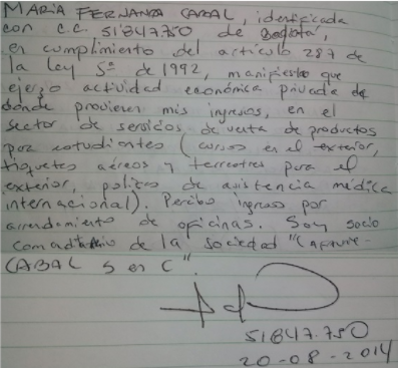 MARIA FERNANDA CABAL, identificada
con c.c. 51847.750 de Bogotá,
en cumplimiento del artículo 287 de
la Ley 5ª de 1992, manifiesto que
ejerzo actividad económica privada de
donde provienen mis ingresos, en el
sector de servicios de venta de productos
para estudiantes (cursos en el exterior,
tiquetes aéreos y terrestres para el
exterior, póliza de asistencia médica
internacional). Percibo ingreso por
arrendamiento de oficinas. Soy socio
comanditario de la sociedad "
CABAL S en C".
51847.750
20-08-2014